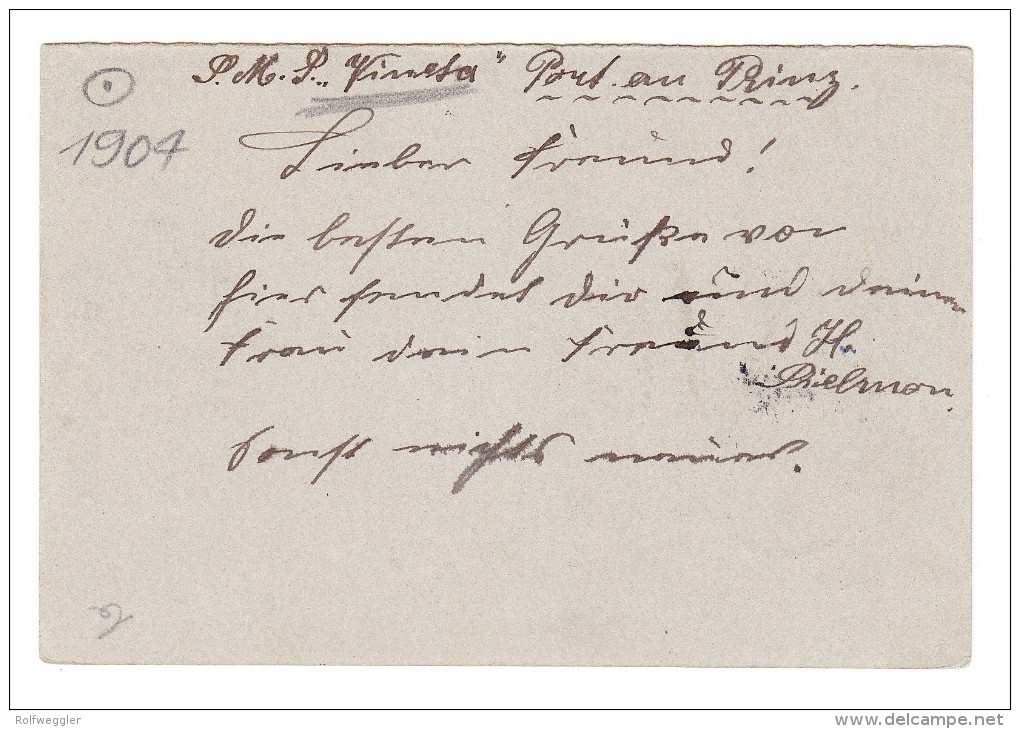 S. M. S. „Vineta" Port au Prinz.
1904
Lieber Freund!
Die besten Grüße von
hier sendet dir und deiner
Frau dein Freund H.
Sonst nichts neues.
Rolfweggler
www.delcampe.net